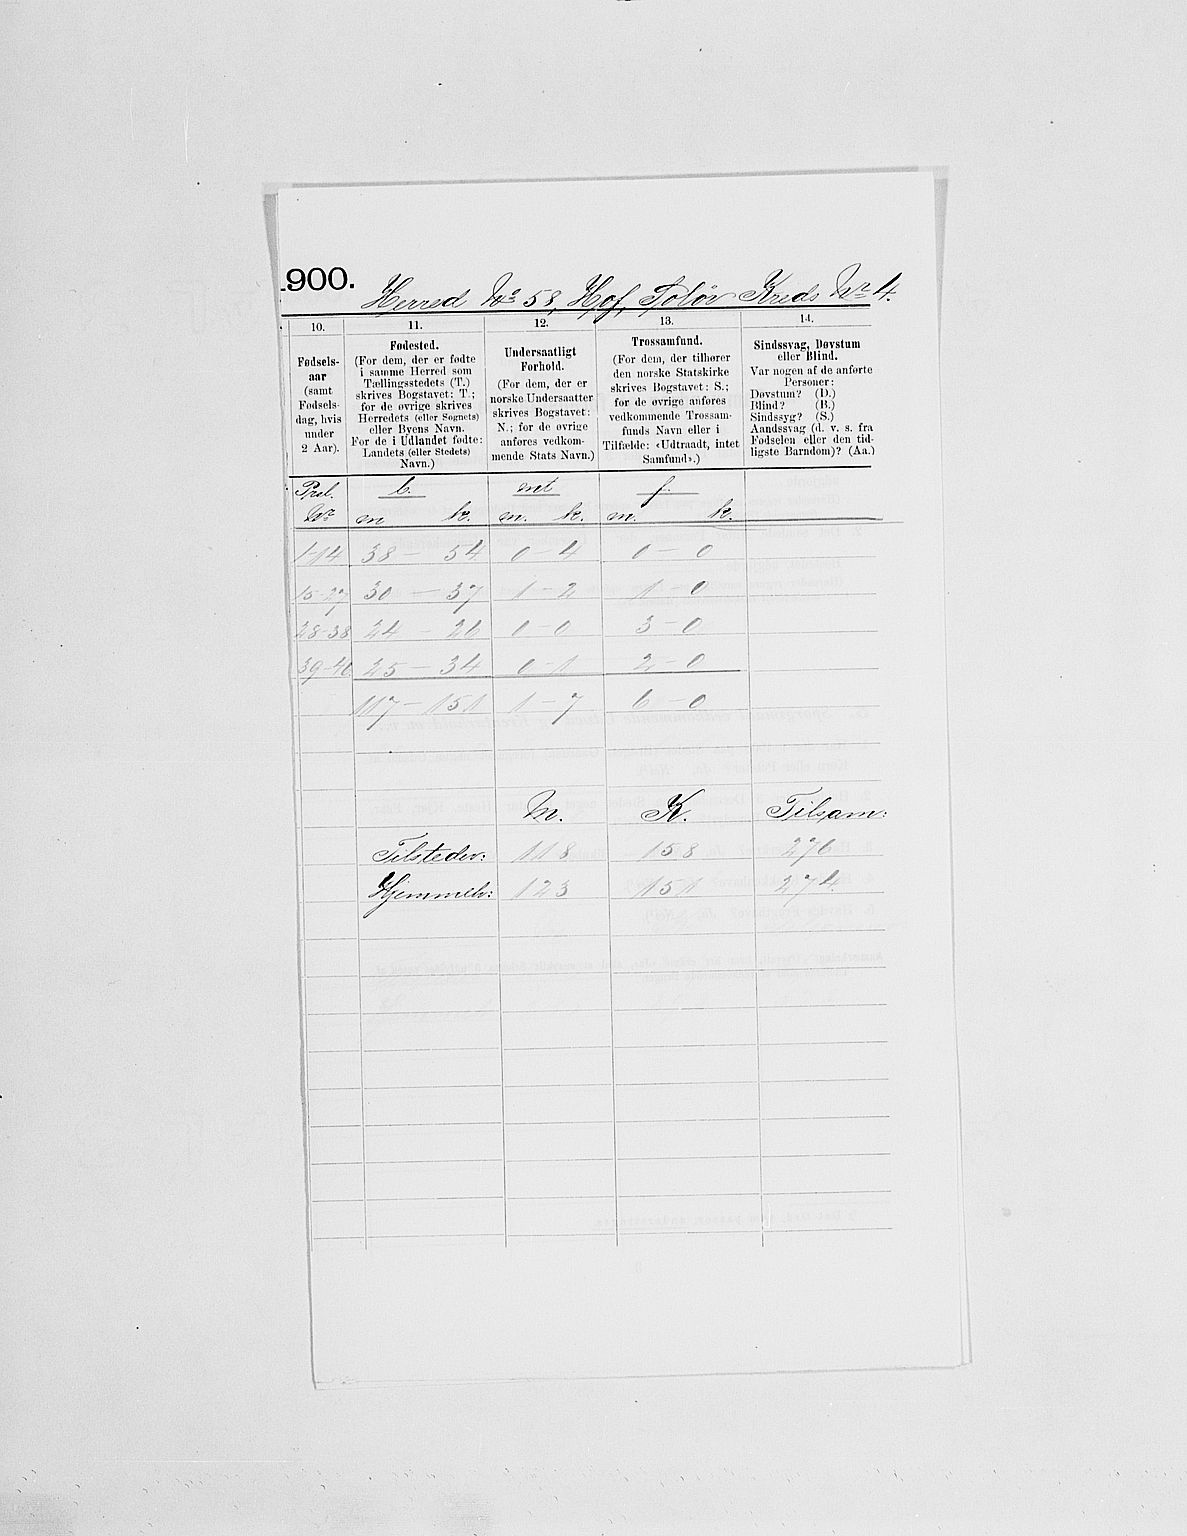 1900. Herred No 58, Hof, Solör Kreds Nr 4.
10. 11. 12. 13. 14.
Fødsels-
aar
(samt
Fødsels-
dag, hvis
under
2 Aar).
Fødested.
(For dem, der er fødte
i samme Herred som
Tællingsstedets (T.)
skrives Bogstavet: T.;
for de øvrige skrives
Herredets (eller Sognets)
eller Byens Navn.
For de i Udlandet fødte:
Landets (eller Stedets)
Navn.)
Undersaatligt
Forhold.
(For dem, der er
norske Undersaatter
skrives Bogstavet:
N.; for de øvrige
anføres vedkom-
mende Stats Navn.)
Trossamfund.
(For dem, der tilhører
den norske Statskirke
skrives Bogstavet: S.;
for de øvrige anføres
vedkommende Trossam-
funds Navn eller i
Tilfælde: «Udtraadt, intet
Samfund».)
Sindssvag, Døvstum
eller Blind.
Var nogen af de anførte
Personer:
Døvstum? (D.)
Blind? (B.)
Sindssyg? (S.)
Aandssvag (d. v. s. fra
Fødselen eller den tid-
ligste Barndom)? (Aa.)
b. mt f.
Nr m k. m. k. m. k.
1-14 38 - 54 0 - 4 0 - 0
15-27 30 - 37 1 - 2 1 - 0
28-38 24 - 26 0 - 0 3 - 0
39-46 25 - 34 0 - 1 2 - 0
117 - 151 1 - 7 6 - 0
M. K. Tilsam:
Tilstedev: 118 158 276
Hjemmeh: 123 151 274.